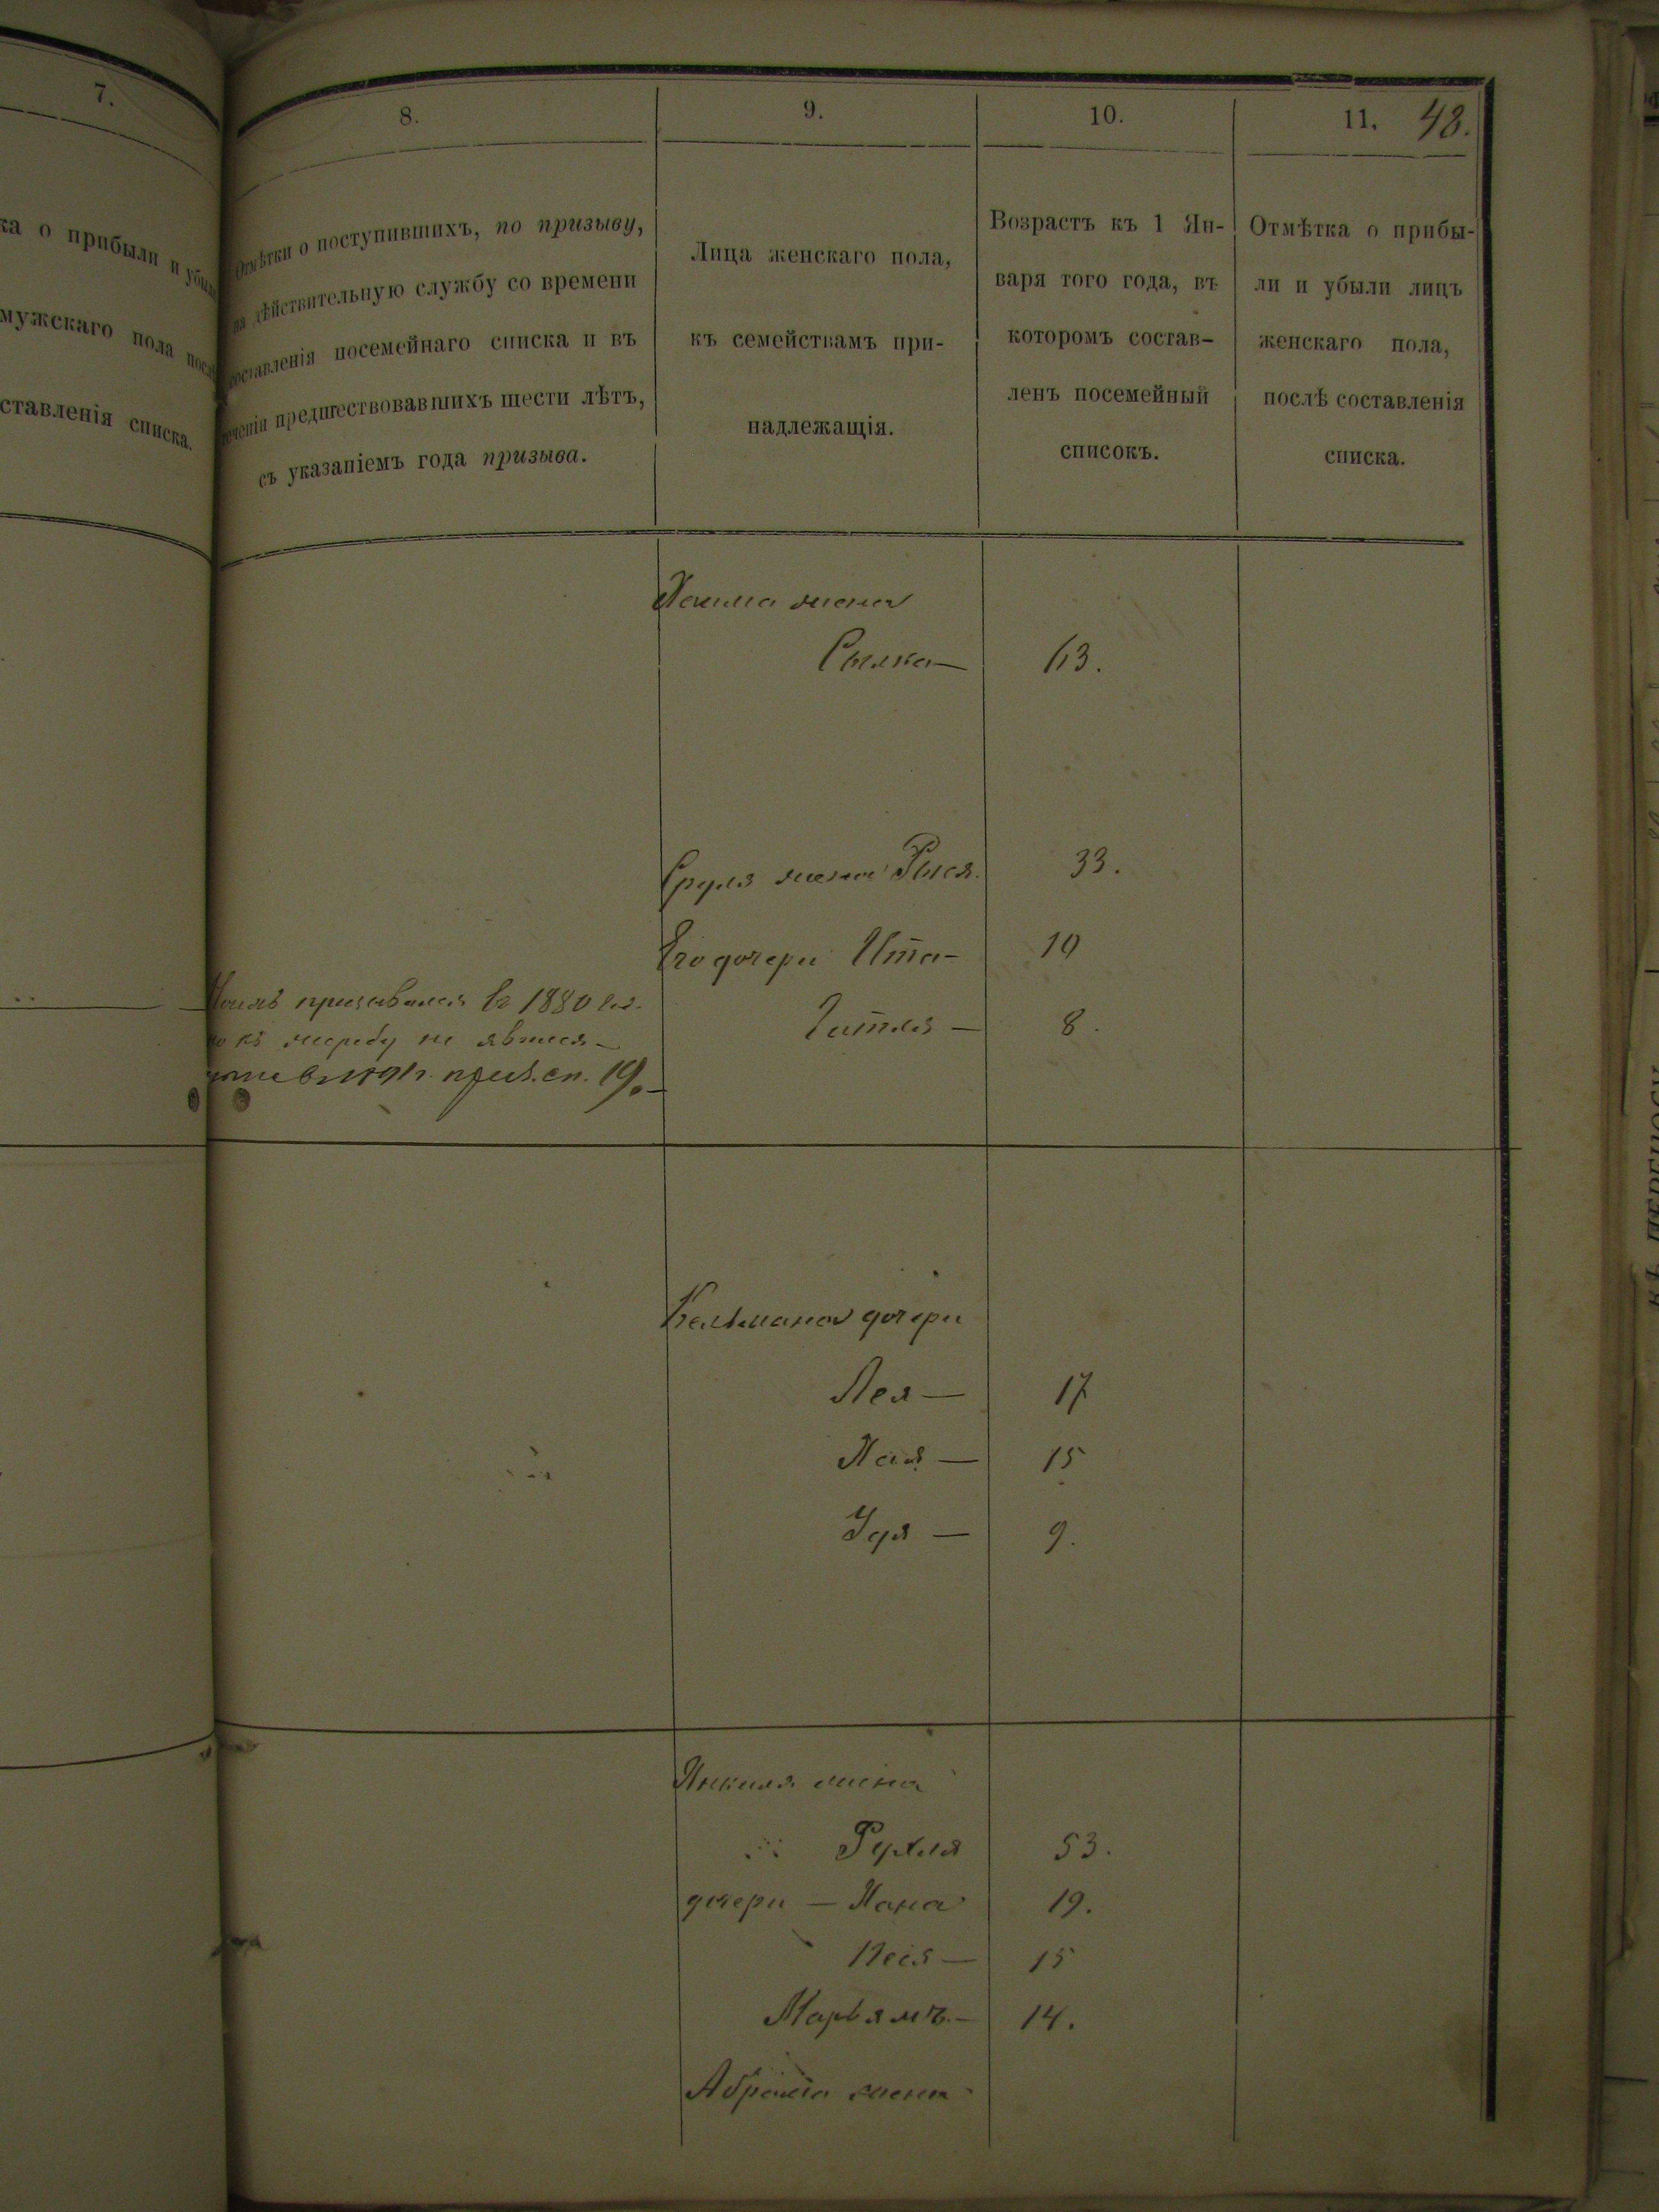 7.
ка о прибыли и убыли
мужскаго пола послѣ
ставленія списка.
8.
Отмѣтки о поступившихъ, по призыву,
на дѣйствительную службу со времени
составленія посемейнаго списка и въ
теченіи предшествовавшихъ шести лѣтъ,
съ указаніемъ года призыва.
9.
Лица женскаго пола,
къ семействамъ при-
надлежащія.
10.
Возрастъ къ 1 Ян-
варя того года, въ
которомъ состав-
ленъ посемейный
списокъ.
11.
48.
Отмѣтка о прибы-
ли и убыли лицъ
женскаго пола,
послѣ составленія
списка.
Хаима жена
63.
Сруля жена Рыся. 33.
Его дочери Ита- 10
призывался въ 1880
къ жеребу не явился
приз. сп. 19.
Гитля — 8.
Кельмана дочери
Лея — 17
Хая — 15
Удя — 9.
Янкеля жена
Рухля 53.
дочери — Хана 19.
Песя — 15
Марьямъ — 14.
Абрама жена